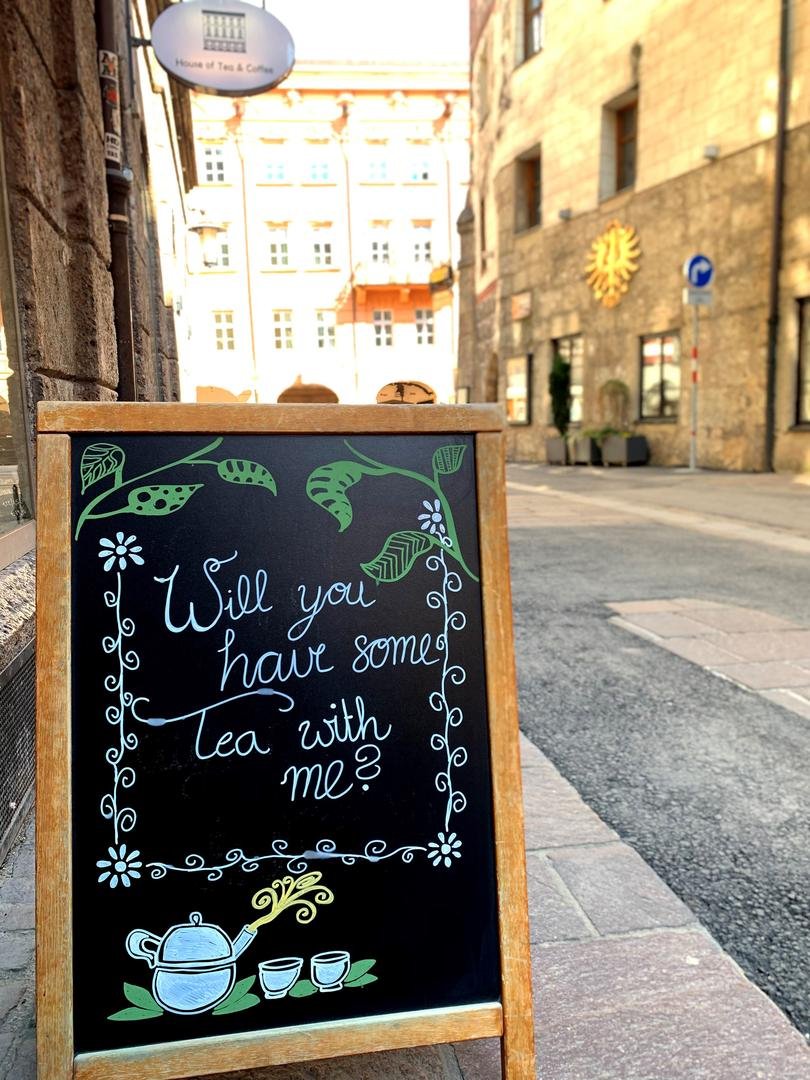 House of Tea & Coffee
Will you
have some
Tea with
me?